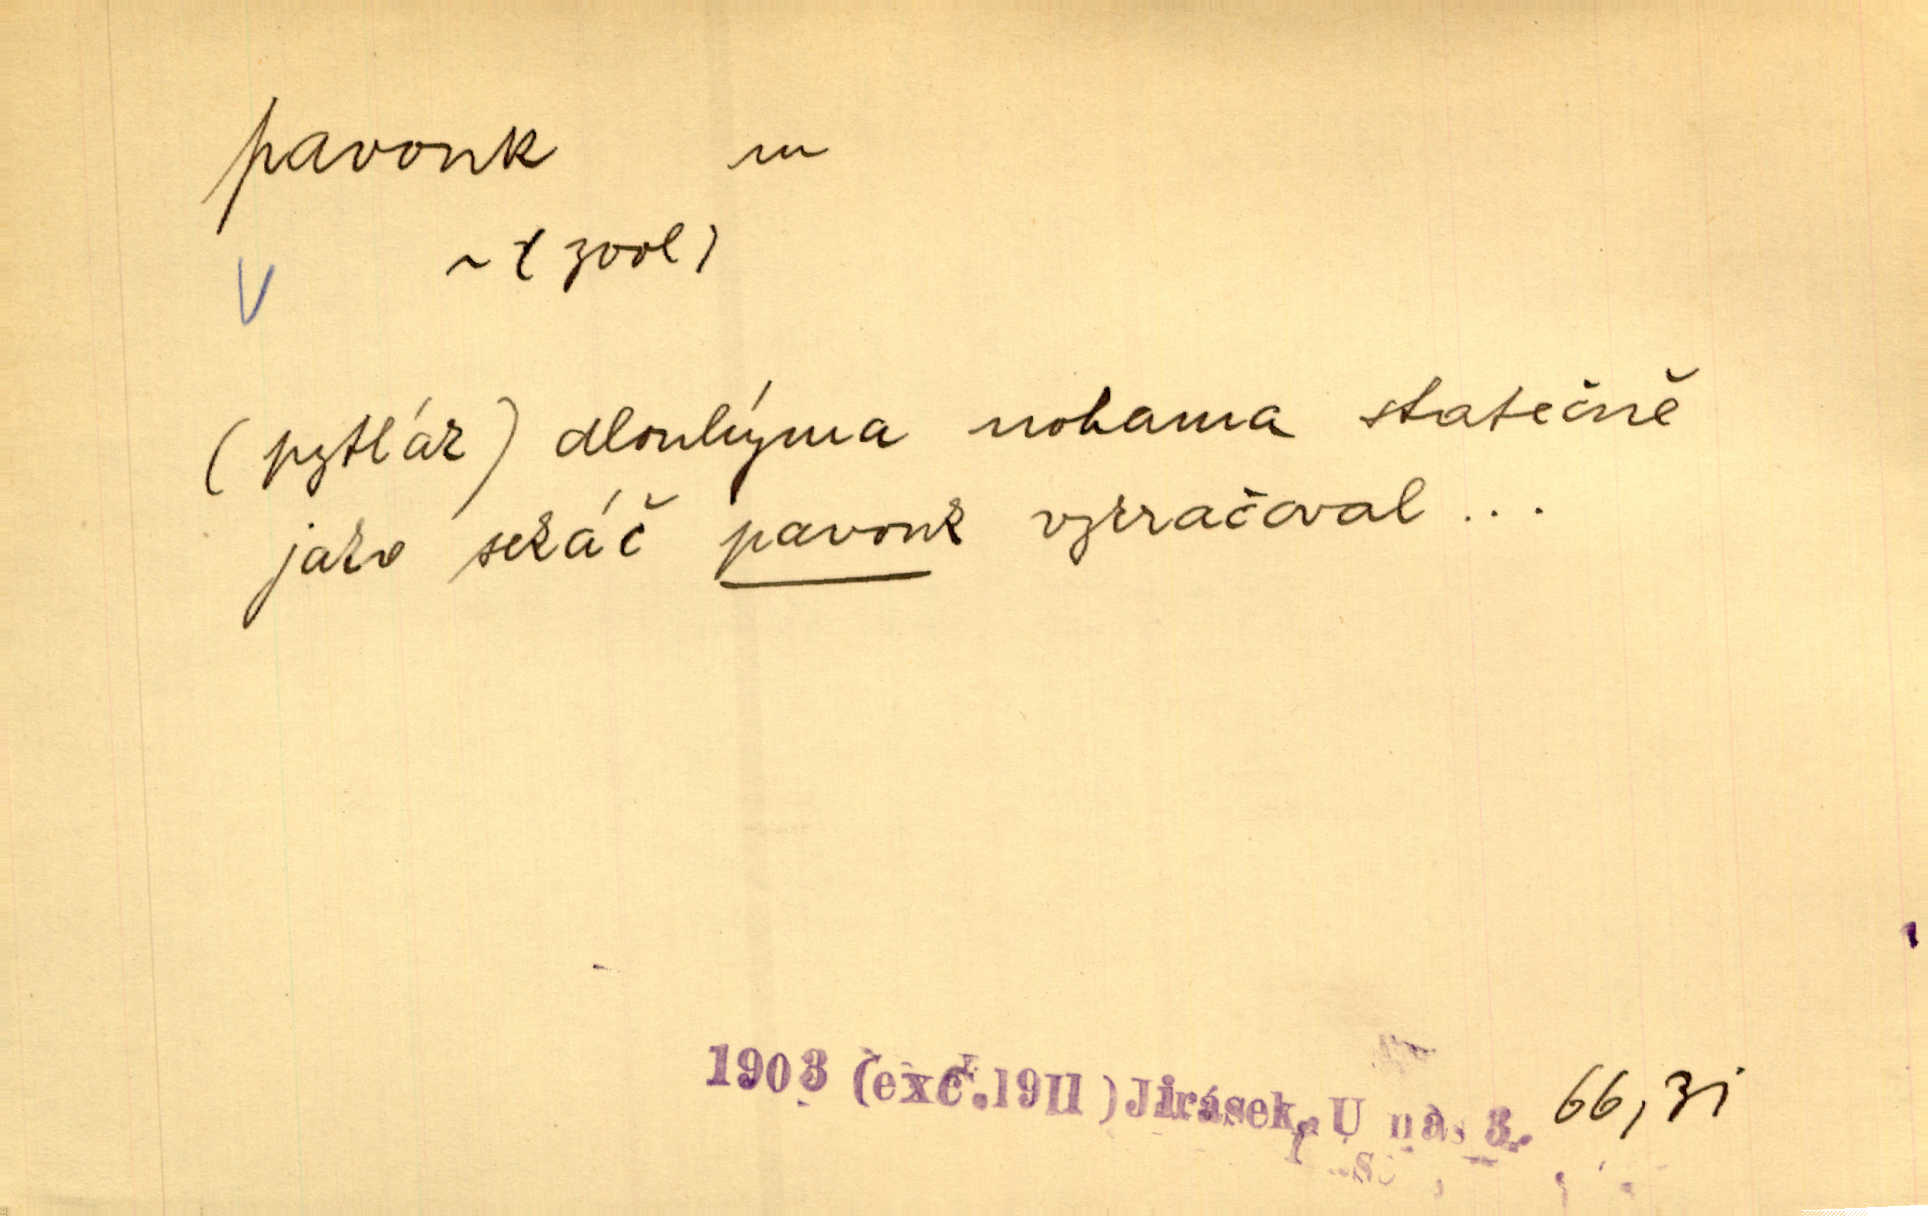 pavouk m
~ (zool)
V
(pytlák) dlouhýma nohama statečně
jako sekáč pavouk vykračoval ...
1903 (exc. 1911) Jirásek, U nás 3. 66, zi